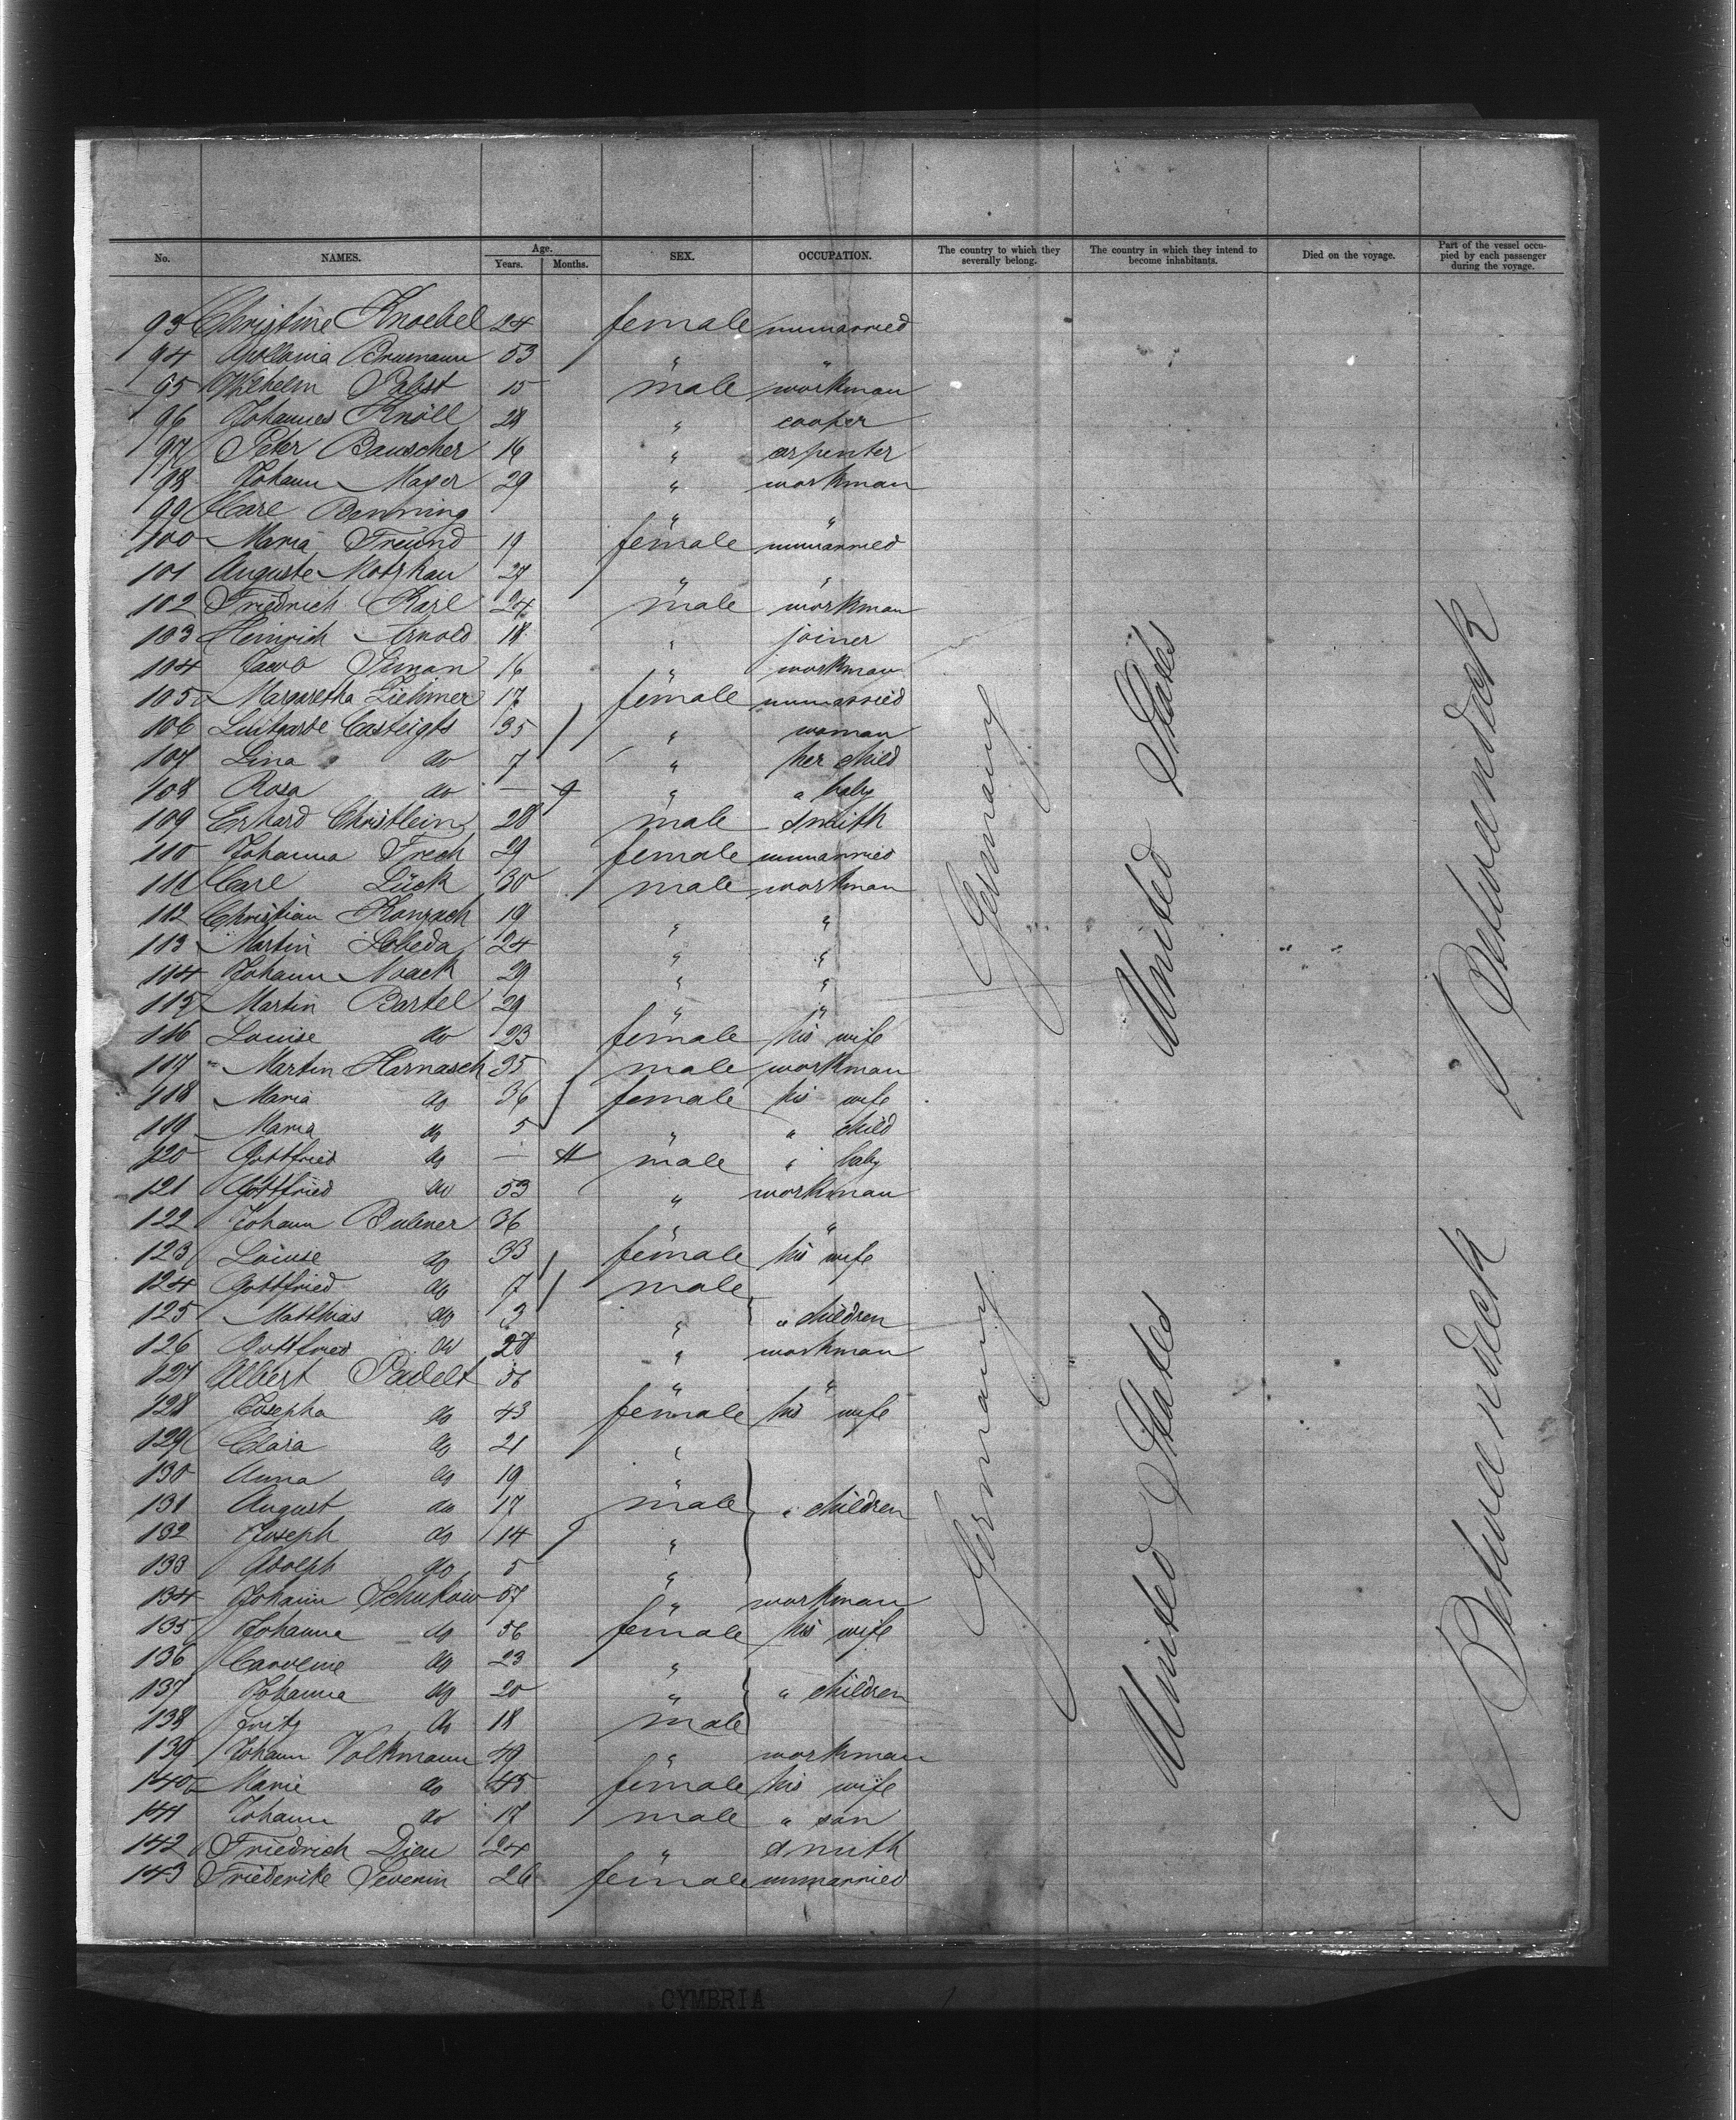 No. NAMES. Age. Years. Months. SEX. OCCUPATION. The country to which they severally belong. The country in which they intend to become inhabitants. Died on the voyage. Part of the vessel occupied by each passenger during the voyage.
93 Christine Knoebel 24 female unmarried
94 Apollonia Brumann 53 " "
95 Wilhelm Pabst 15 male workman
96 Johannes Knöll 28 " cooper
97 Peter Bauscher 16 " arpenter
98 Johann Mayer 29 " workman
99 Carl Benning " "
100 Maria Freund 19 female unmarried
101 Auguste Motzkau 27 " "
102 Friedrich Karl 24 male workman
103 Heinrich Arnold 18 " joiner
104 Jacob Simon 16 " workman
105 Margaretha Ziehmer 17 female unmarried
106 Luitgarde Casteigts 35 " woman
107 Lina do 7 " her child
108 Rosa do — 9 " " baby
109 Erhard Christlein 28 male smith
110 Johanna Frech 29 female unmarried
111 Carl Lück 30 male workman
112 Christian Konzach 19 " "
113 Martin Lobeda 24 " "
114 Johann Noack 29 " "
115 Martin Bartel 29 " "
116 Louise do 23 female his wife
117 Martin Harnasch 35 male workman
118 Maria do 36 female his wife
119 Maria do 5 " " child
120 Gottfried do — male " baby
121 Gottfried do 53 " workman
122 Johann Bulmer 36 " "
123 Louise do 33 female his wife
124 Gottfried do 7 male
125 Matthias do 3 " " children
126 Gottfried do 28 " workman
127 Albert Padelt 56 " "
128 Josepha do 43 female his wife
129 Clara do 21 "
130 Anna do 19 "
131 August do 17 male " children
132 Joseph do 14 "
133 Adolph do 5 "
134 Johann Schukow 57 " workman
135 Johanna do 56 female his wife
136 Caroline do 23 "
137 Johanna do 20 " " children
138 Fritz do 18 male
139 Johann Volkmann 49 " workman
140 Marie do 45 female his wife
141 Johann do 17 male " son
142 Friedrich Dieu 24 " smith
143 Friederike Severin 26 female unmarried
Germany
United States
Betweendeck
Germany
United States
Betweendeck
CYMBRIA